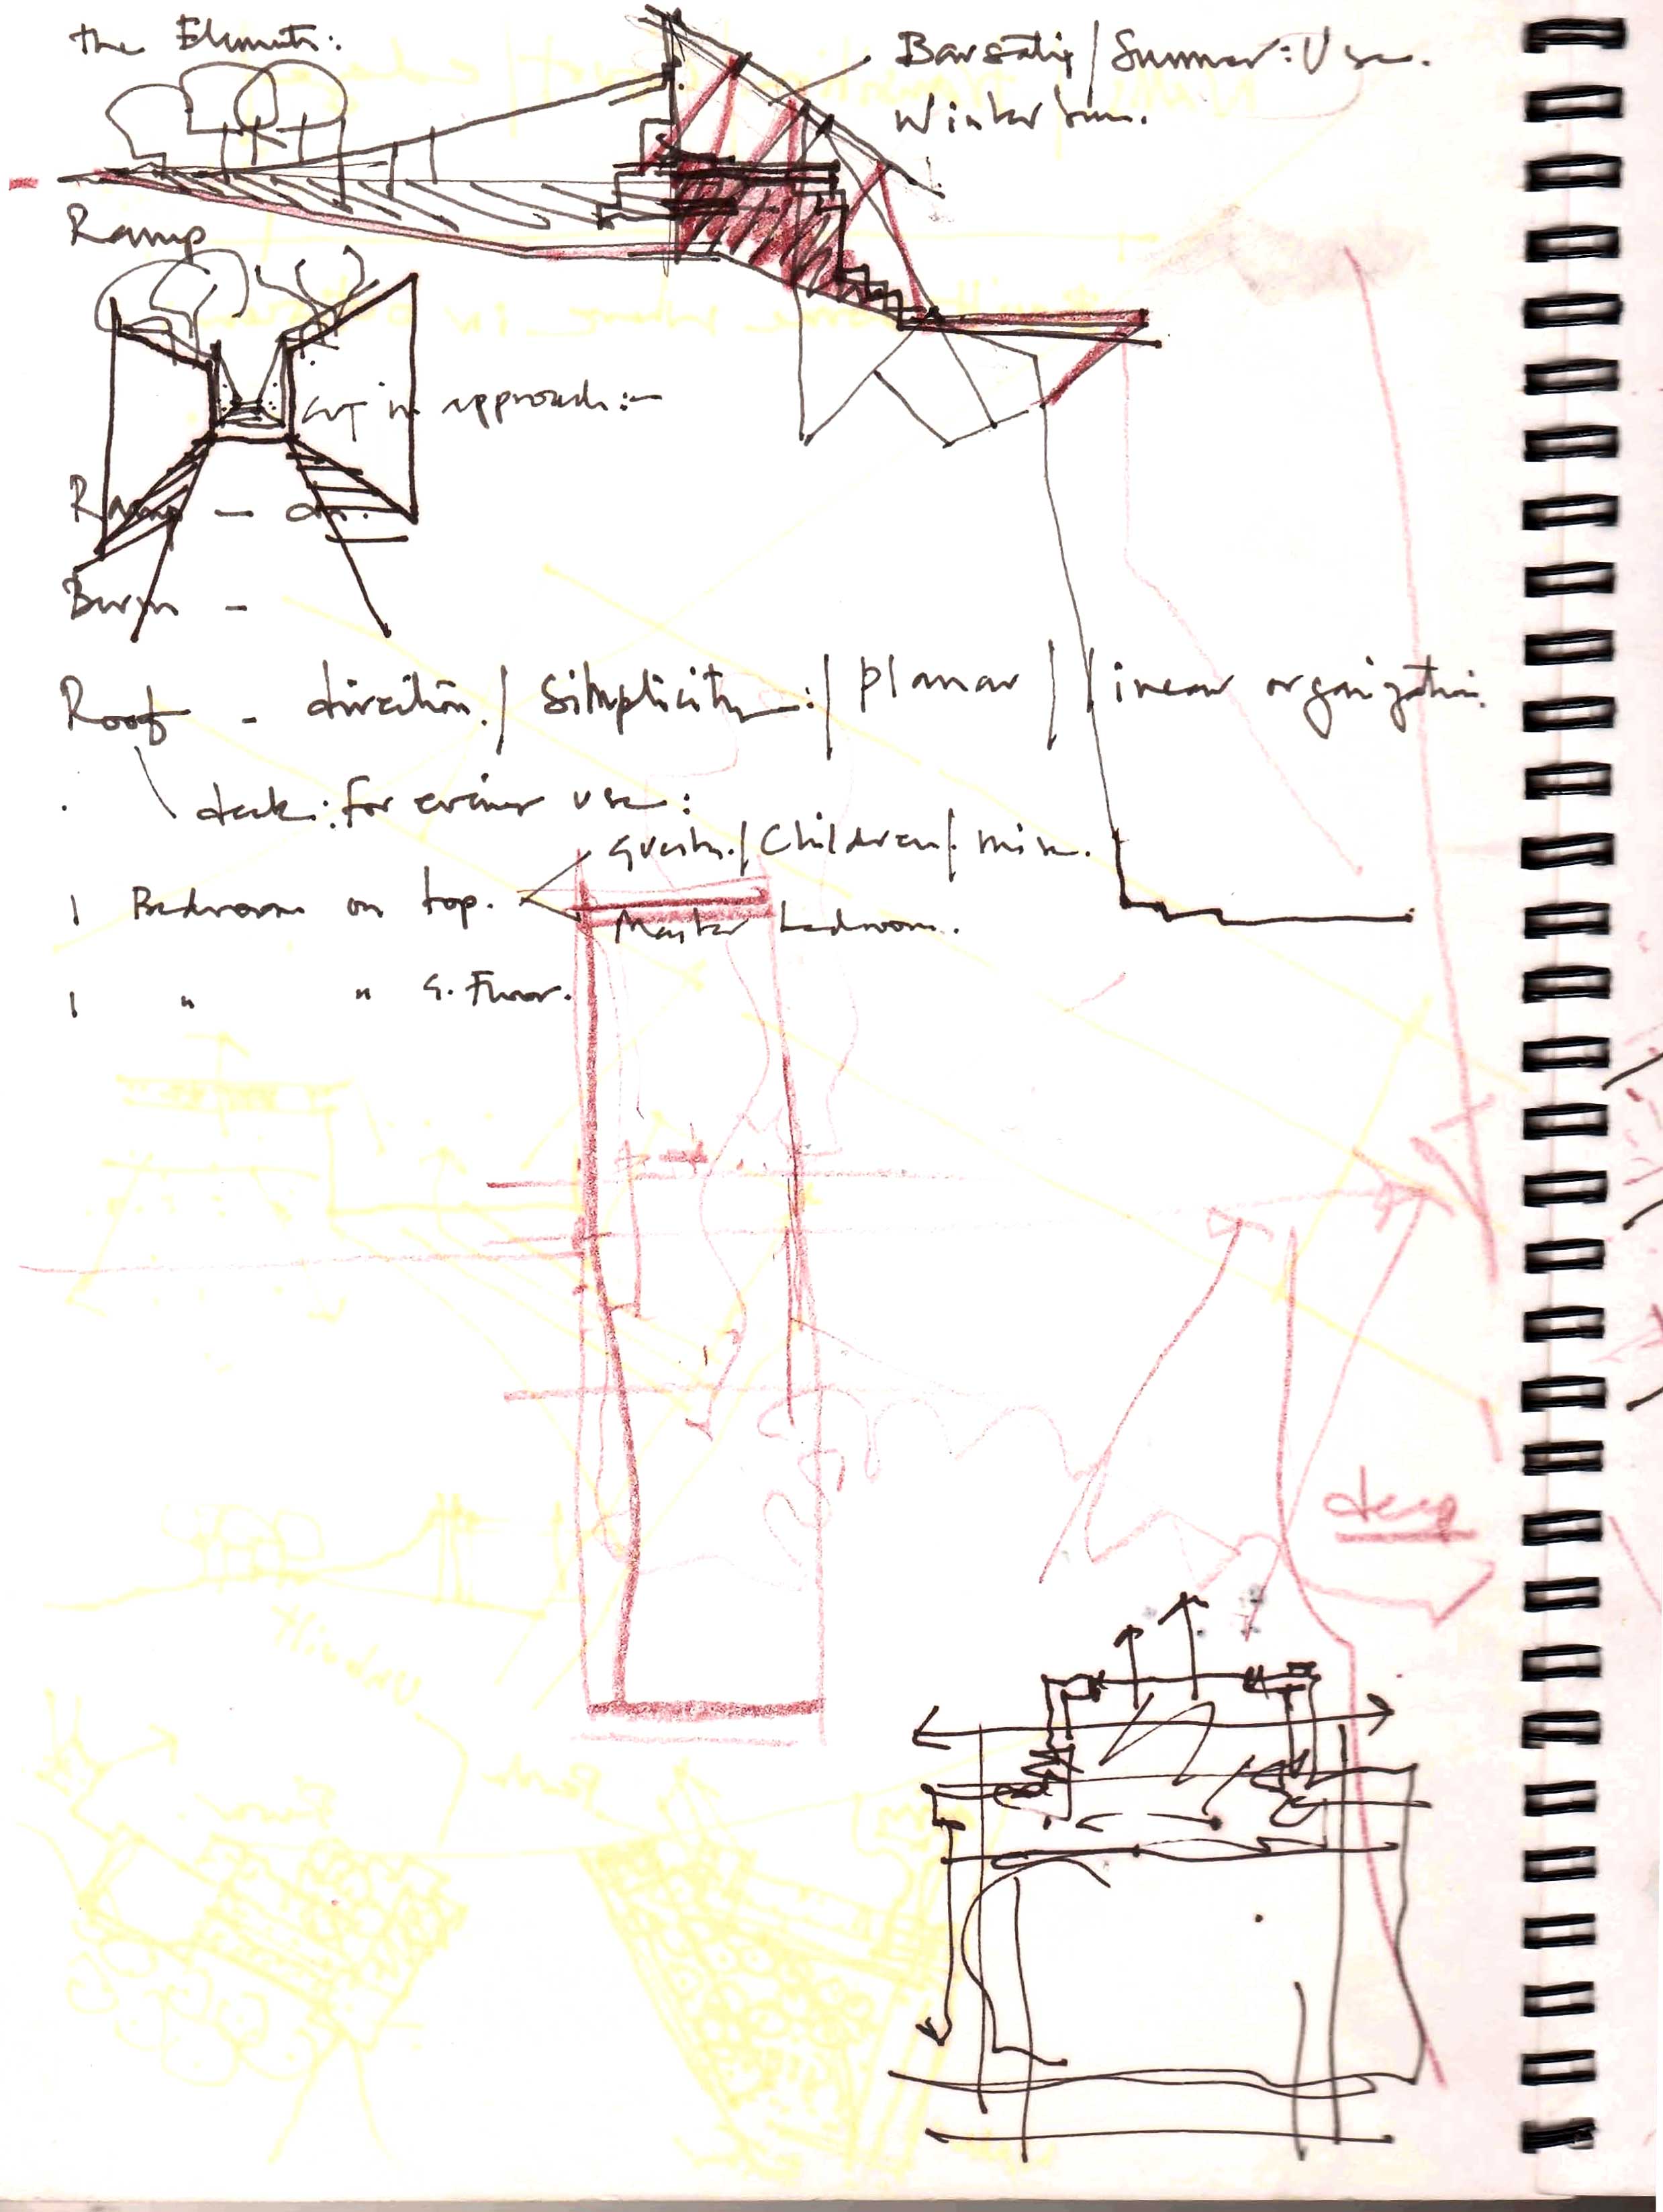 the Elements:
Barsati / Summer: Use.
Winter sun.
Ramp
cut in approach:-
Ramp - on.
Berm -
Roof - direction / Simplicity: / planar / linear organization.
deck: for evening use:
Guests. / Children / misc.
1 Bedroom on top.
Master bedroom.
1 " " G. Floor.
deep